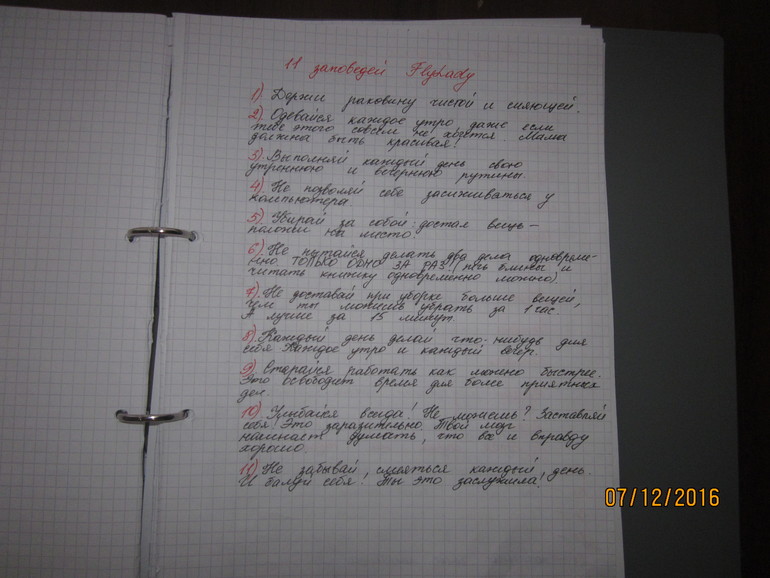 11 заповедей FlyLady
1). Держи раковину чистой и сияющей.
2). Одевайся каждое утро, даже если
тебе этого совсем не хочется. Мама
должна быть красивая!
3). Выполняй каждый день свою
утреннюю и вечернюю рутины.
4). Не позволяй себе засиживаться у
компьютера.
5). Убирай за собой: достал вещь –
положи на место.
6). Не пытайся делать два дела одновреме-
нно. ТОЛЬКО ОДНО ЗА РАЗ! (печь блины и
читать книжку одновременно можно)
7). Не доставай при уборке больше вещей,
чем ты можешь убрать за 1 час.
А лучше за 15 минут.
8). Каждый день делай что-нибудь для
себя. Каждое утро и каждый вечер.
9). Старайся работать как можно быстрее.
Это освободит время для более приятных
дел.
10). Улыбайся всегда! Не можешь? Заставляй
себя! Это заразительно. Твой мозг
начинает думать, что все и вправду
хорошо.
11). Не забывай смеяться каждый день.
И балуй себя! Ты это заслужила!
07/12/2016